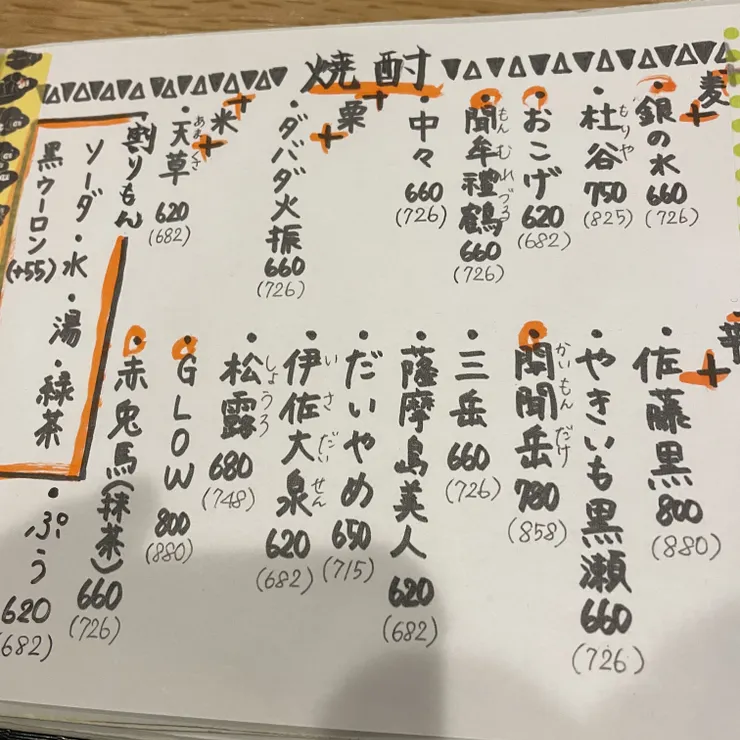 焼酎
麦
銀の水 660 (726)
杜谷 もりや 750 (825)
おこげ 620 (682)
閜牟禮鶴 もんむれづる 660 (726)
中々 660 (726)
栗
ダバダ火振 660 (726)
米
天草 あまくさ 620 (682)
割りもん
ソーダ・水・湯・緑茶
黒ウーロン (+55)
芋
佐藤黒 800 (880)
やきいも黒瀬 660 (726)
開聞岳 かいもんだけ 780 (858)
三岳 660 (726)
薩摩島美人 620 (682)
だいやめ 650 (715)
伊佐大泉 いさだいせん 620 (682)
松露 しょうろ 680 (748)
GLOW 800 (880)
赤兎馬(抹茶) 660 (726)
ぷう 620 (682)